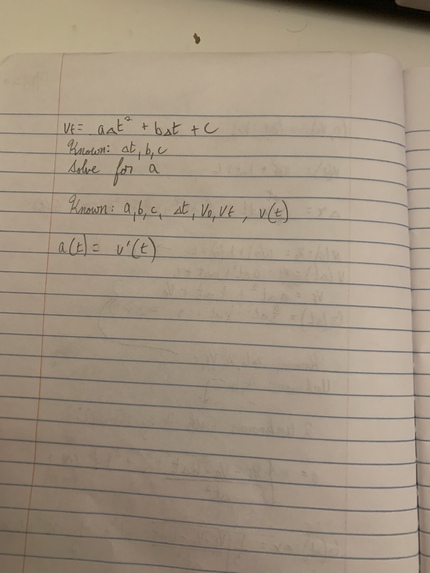 Vt= aΔt² + bΔt + c
Known: Δt, b, c
Solve for a
Known: a, b, c, Δt, V₀, Vt, v(t)
a(t) = v'(t)